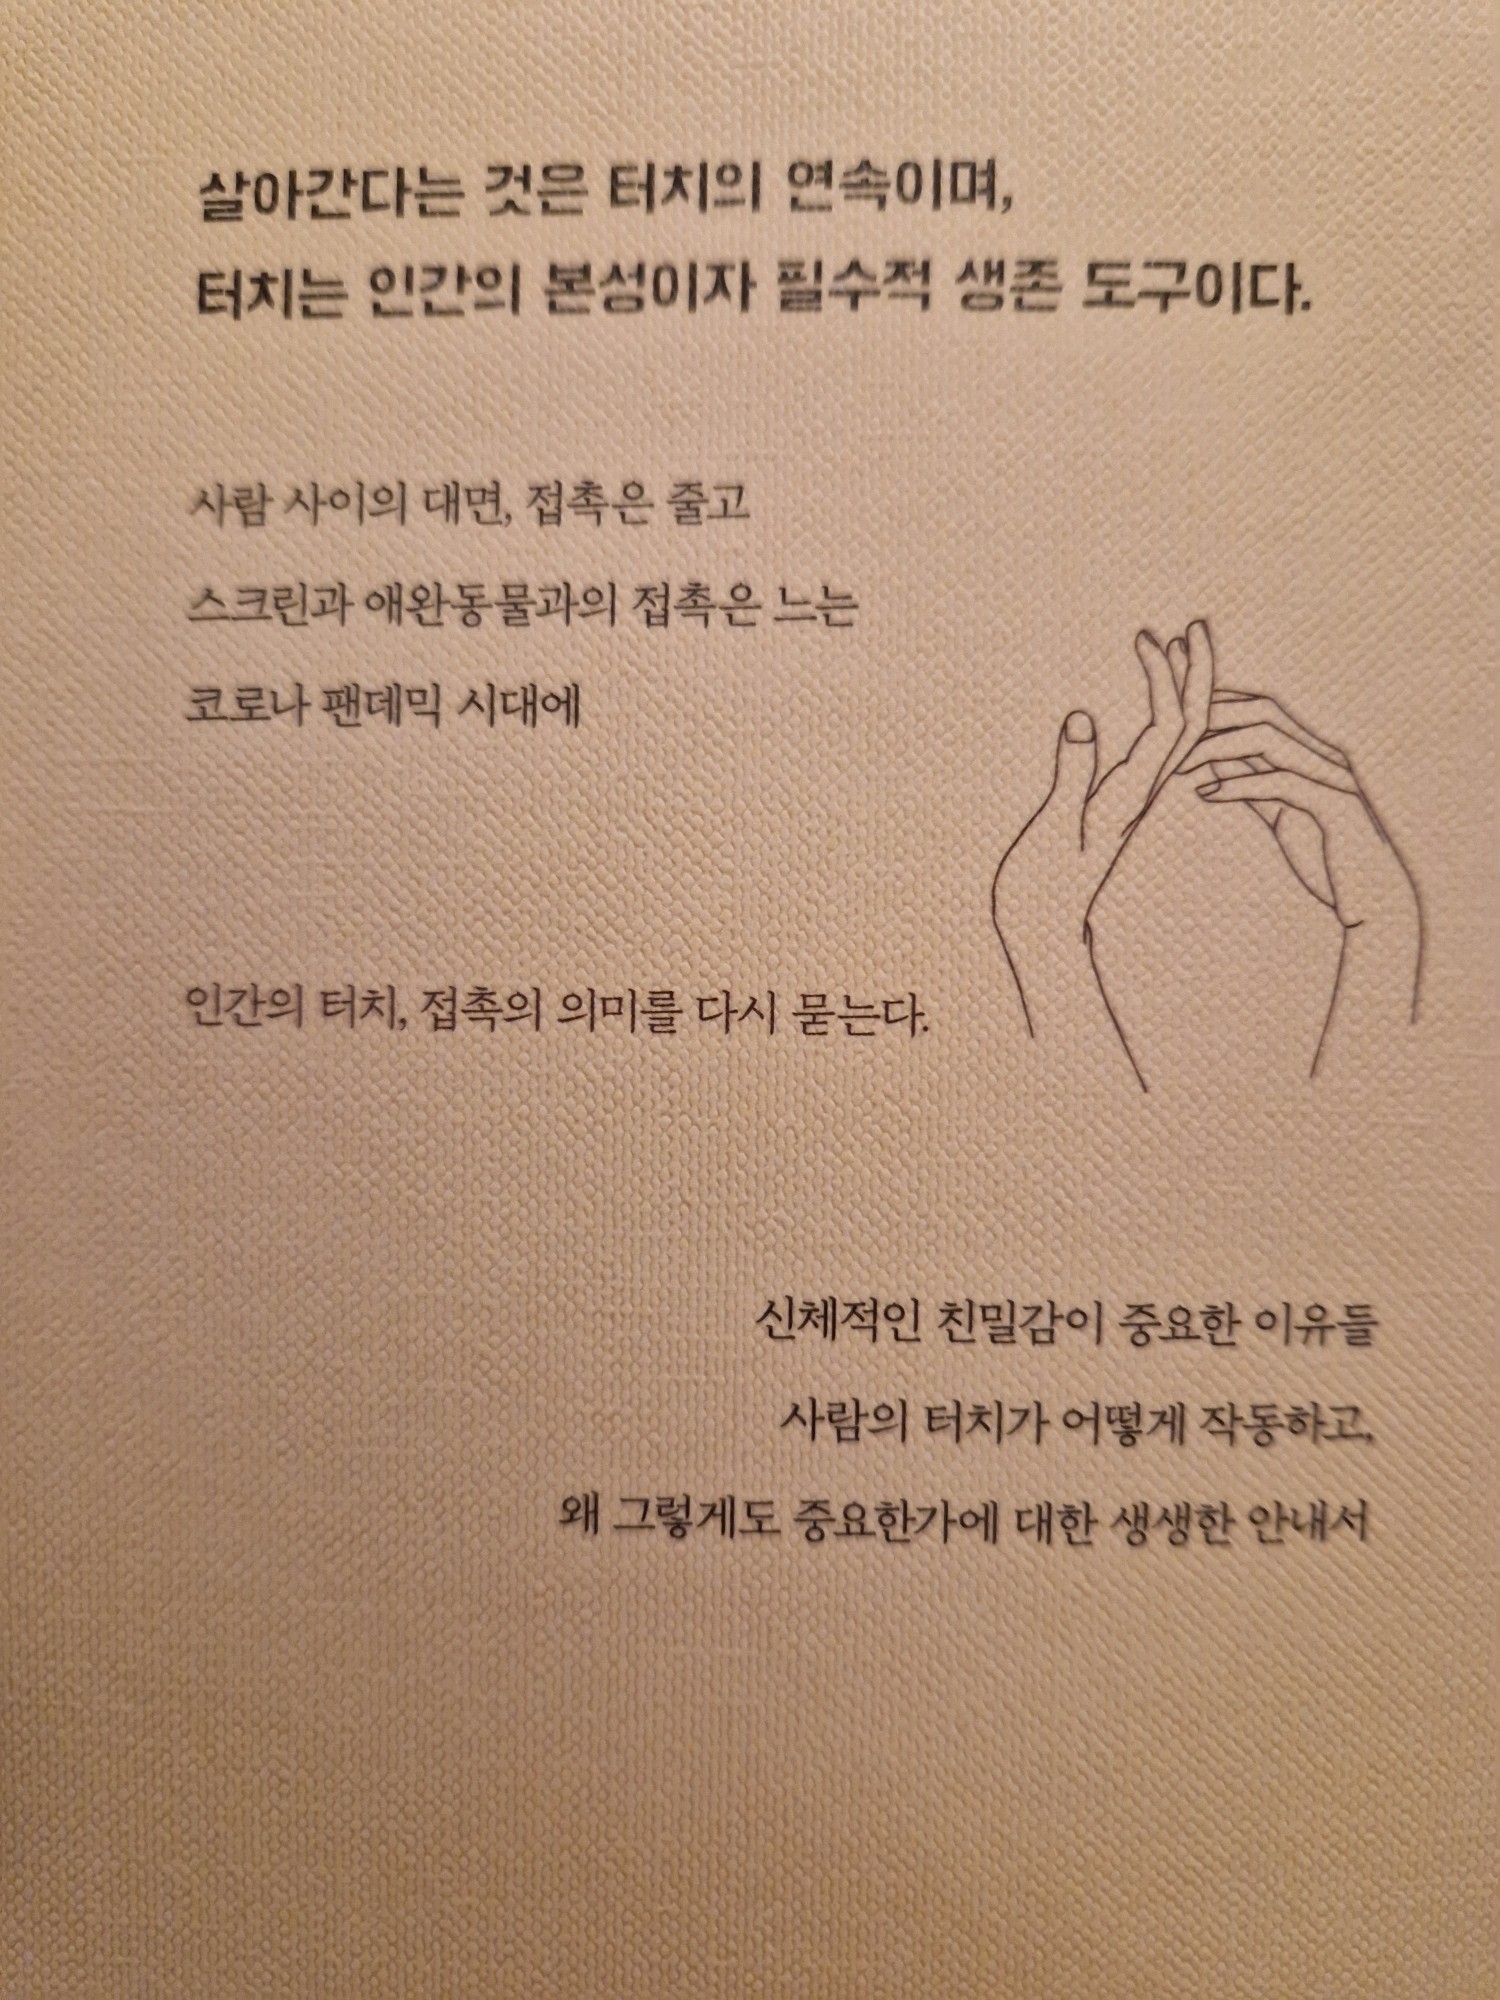 살아간다는 것은 터치의 연속이며,
터치는 인간의 본성이자 필수적 생존 도구이다.
사람 사이의 대면, 접촉은 줄고
스크린과 애완동물과의 접촉은 느는
코로나 팬데믹 시대에
인간의 터치, 접촉의 의미를 다시 묻는다.
신체적인 친밀감이 중요한 이유들
사람의 터치가 어떻게 작동하고,
왜 그렇게도 중요한가에 대한 생생한 안내서